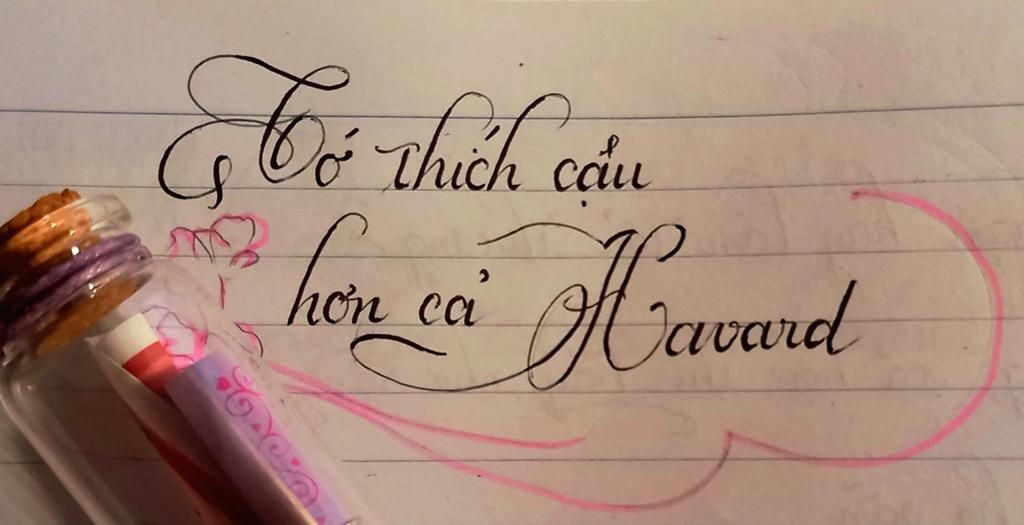 Tớ thích cậu
hơn cả Havard